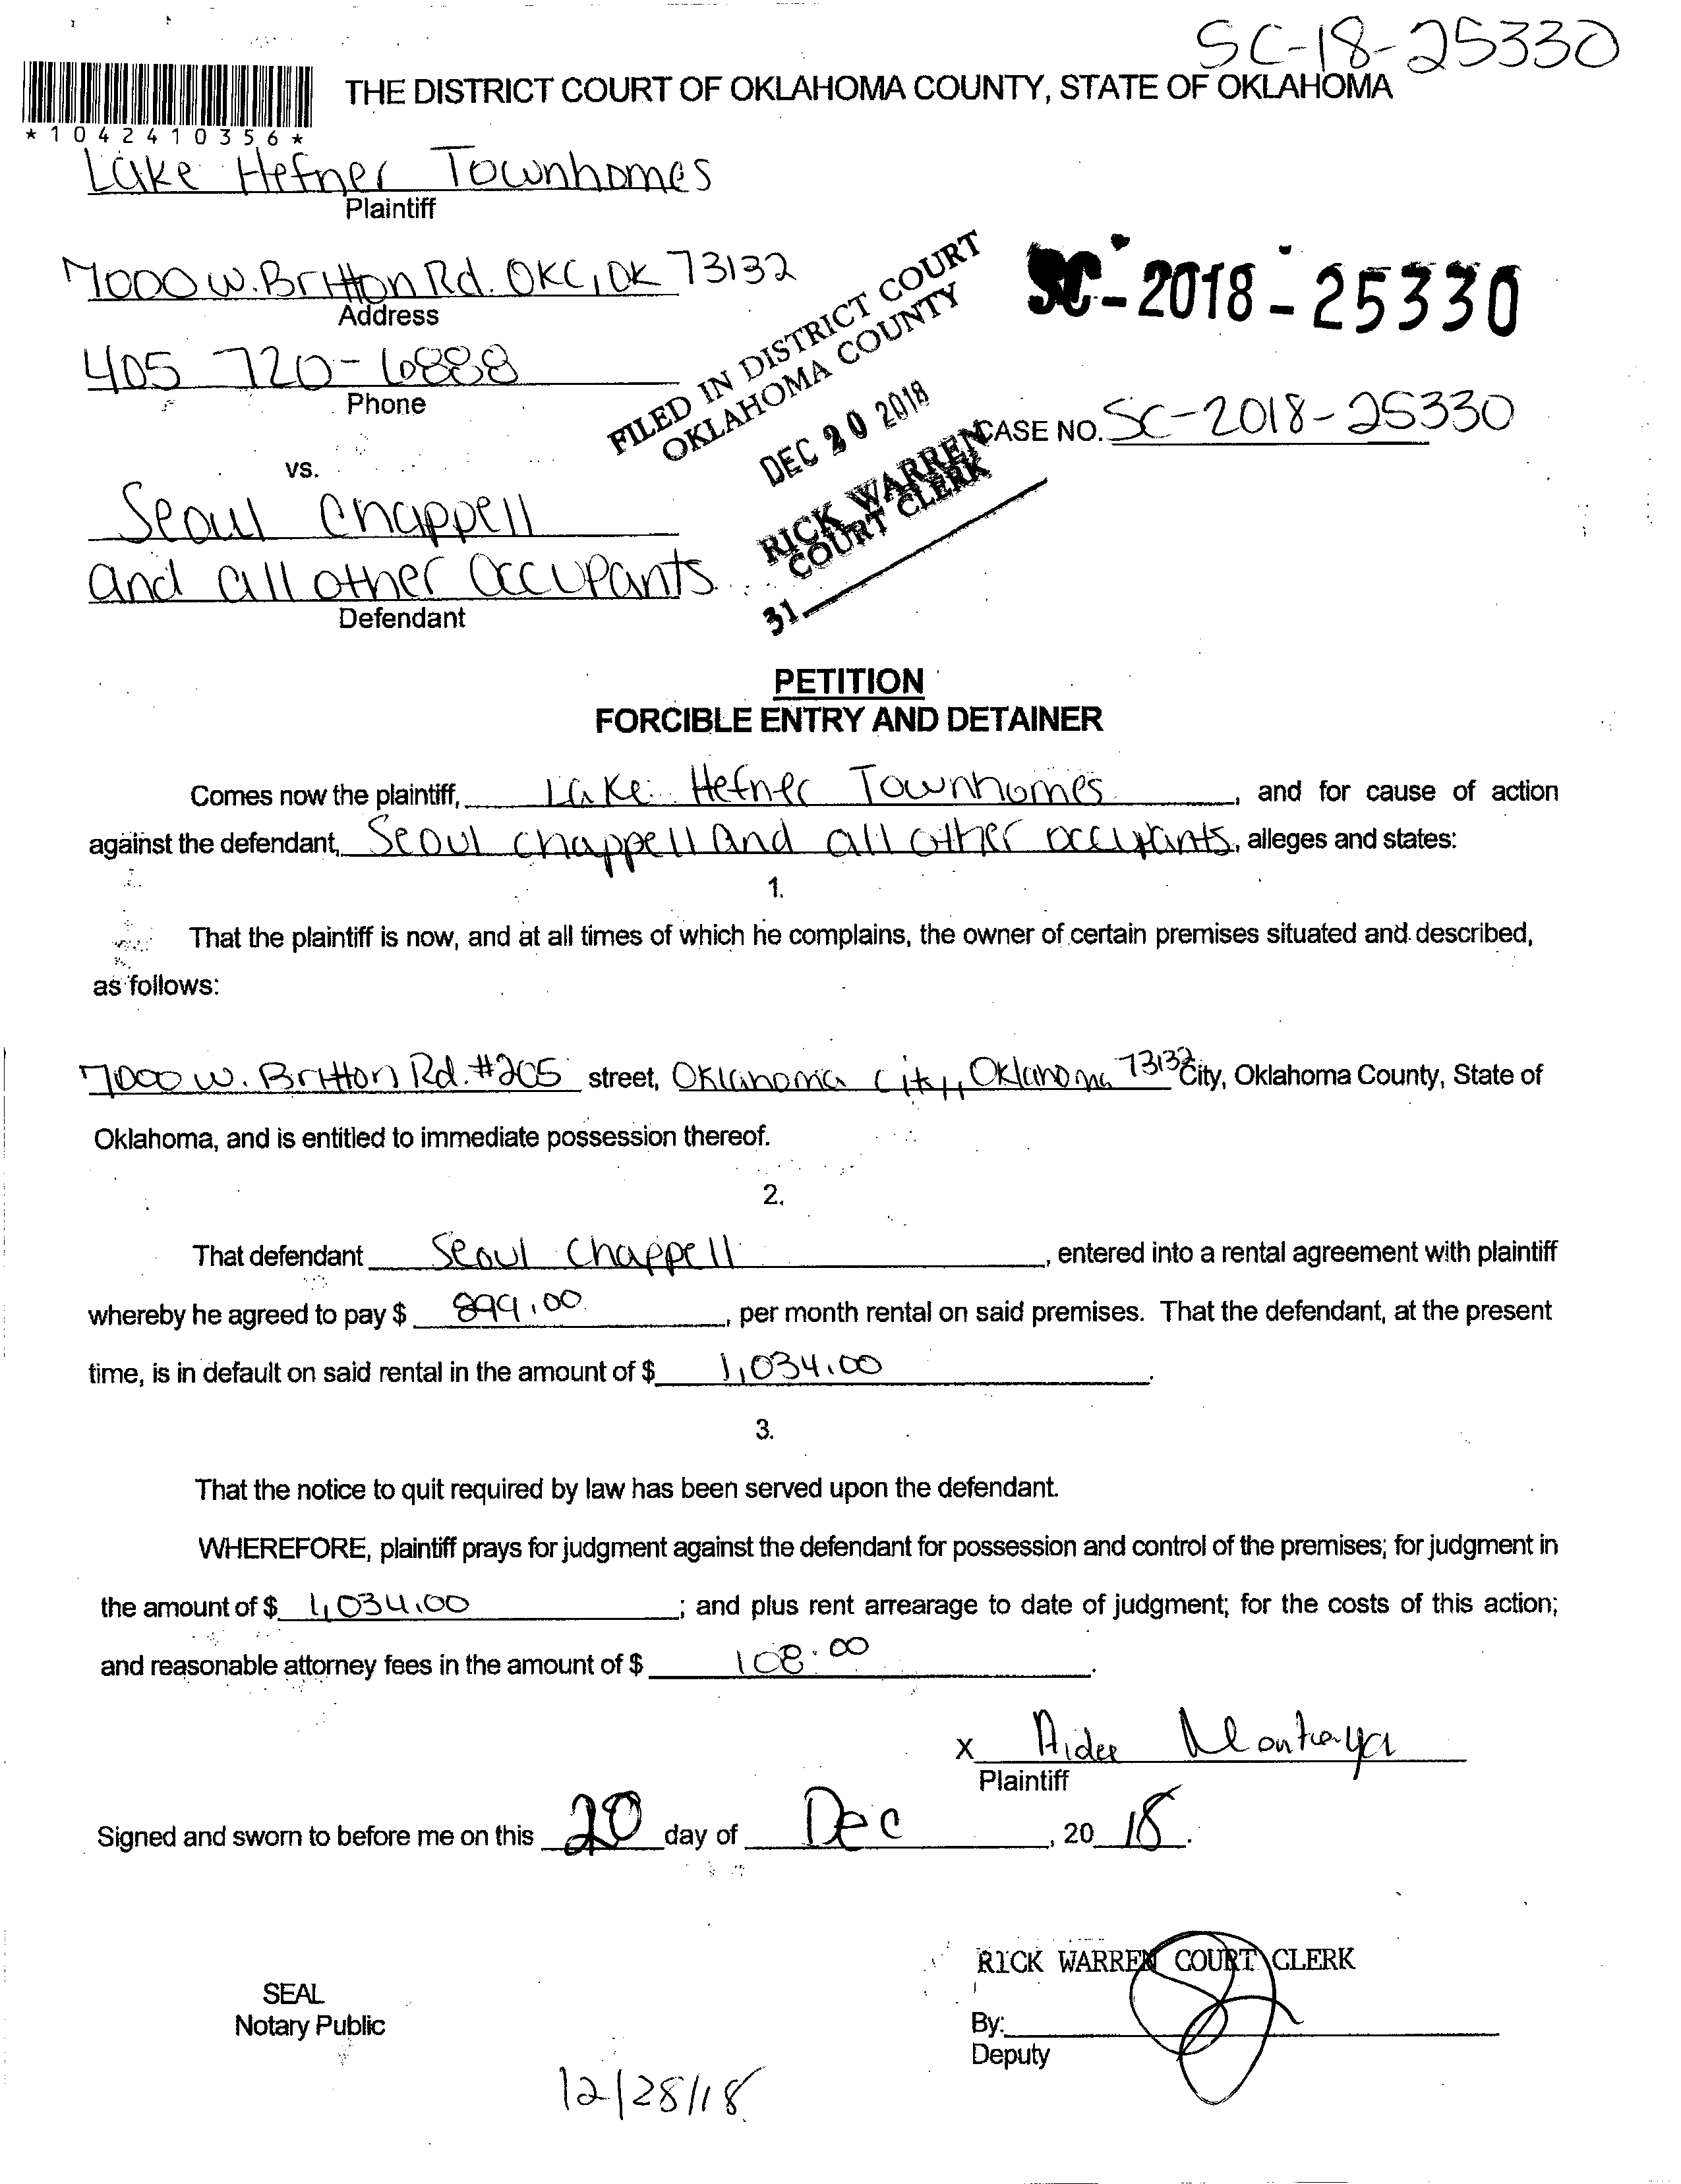 SC-18-25330
THE DISTRICT COURT OF OKLAHOMA COUNTY, STATE OF OKLAHOMA
*1042410356*
Lake Hefner Townhomes
Plaintiff
7000 W. Britton Rd. OKC, OK 73132
Address
405 720-6888
Phone
FILED IN DISTRICT COURT
OKLAHOMA COUNTY
DEC 20 2018
RICK WARREN
COURT CLERK
31
SC-2018-25330
CASE NO. SC-2018-25330
vs.
Seoul Chappell
and all other occupants
Defendant
PETITION
FORCIBLE ENTRY AND DETAINER
Comes now the plaintiff, Lake Hefner Townhomes, and for cause of action
against the defendant, Seoul chappell and all other occupants, alleges and states:
1.
That the plaintiff is now, and at all times of which he complains, the owner of certain premises situated and described,
as follows:
7000 W. Britton Rd. #205 street, Oklahoma City, Oklahoma 73132 City, Oklahoma County, State of
Oklahoma, and is entitled to immediate possession thereof.
2.
That defendant Seoul Chappell, entered into a rental agreement with plaintiff
whereby he agreed to pay $ 899.00, per month rental on said premises. That the defendant, at the present
time, is in default on said rental in the amount of $ 1,034.00.
3.
That the notice to quit required by law has been served upon the defendant.
WHEREFORE, plaintiff prays for judgment against the defendant for possession and control of the premises; for judgment in
the amount of $ 1,034.00; and plus rent arrearage to date of judgment; for the costs of this action;
and reasonable attorney fees in the amount of $ 108.00.
X Aidee Montoya
Plaintiff
Signed and sworn to before me on this 20 day of Dec, 20 18.
RICK WARREN COURT CLERK
SEAL
Notary Public
By:
Deputy
12/28/18